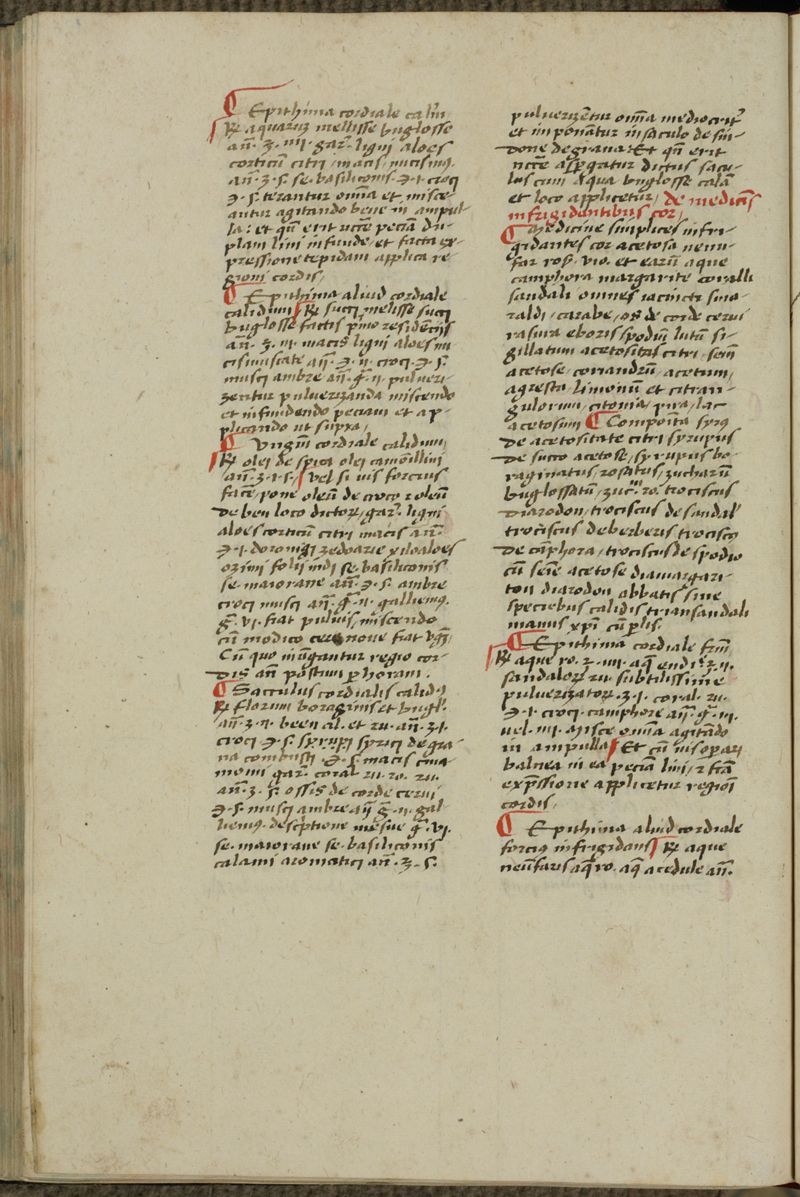 ¶ Epithima cordiale calidũ
℞ aquarũ mellisse buglosse
añ. ʒ. iiij. gar. ligni aloes
corticũ citri / macis / nucis muſ.
añ. ʒ. ſ. se. basiliconis. ℈. i. croci
℈. ſ. terantur omĩa et misce-
antur agitando bene in ampul-
la: et qñ erit ncc̃e peciã du-
plam lini infunde / et facta ex-
pressione tepidam applica re-
gioni cordis /
¶ Epithima aliud cordiale
calidum ℞ succi melisse succi
buglosse factis p̃mo residẽcijs
añ. ʒ. iij. macis ligni aloes nu
cis muscate añ. ℈. ij. croci. ℈. ſ.
musci ambre añ. g̃. ij. pulueri-
zentur puluerizanda miscendo
et infundendo peciam et ap-
plicando ut supra /
¶ Vngm̃ cordiale calidum /
℞ olei de spica olei camomillini
añ. ʒ. i. ſ. / vel si uis forcius
fac̃e pone oleũ de croco ⁊ oleũ
de ben loco dictoꝝ / gar. ligni
aloes corticũ citri macis añ.
℈. i. doronici zedoarie xiloaloes
ozimi folij indi se. basiliconis
se. maiorane añ. ℈. ſ. ambre
croci musci añ. g̃. ij. galliemuſ.
g̃. vi. fiat puluis / miscendo
cũ modico cere noue fiat vng̃.
Cũ quo inũgantur regio cor-
dis añ pastum ꝑ horam.
¶ Sacculus cordialis calid9
℞ florum boraginis et bugl̃.
añ. ʒ. ij. been al. et ru. añ. ʒ. i.
croci ℈. ſ. de gra-
na combusti ℈. ſ. macis cina-
momi gar. coral. ru. ro. ru.
añ. ʒ. ſ. ossis de corde cerui
℈. ſ. musci ambre añ g̃. ij. gal-
liemuſ. descp̃tione mesue g̃. vi.
se. maiorane se. basiliconis
calami aromatici añ. ʒ. ſ.
puluerizẽtur omĩa mediocrit̃
et imponãtur in sacculo de sin-
done de grana: Et qñ erit
ncc̃e asp̱gatur dictus saccu-
lus cum aqua buglosse calã
et loco applicetur / de medicis
infrigidantibus cor /
¶ Medicine simplices infri-
gidantes cor acetosa nenu-
far rose. vio. et earũ aque
camphora margarite coralli
sandali omnes iacincti sma-
raldi / carabe / os de corde cerui
rasura eboris / spodiũ lutũ si-
gillatum acetositas citri / sem̃
acetose / coriandrũ / acetum /
agresta limonũ et citran-
gulorum / citonia / pira / lac
acetosum ¶ Composita syrꝰ
de acetositate citri syrupus
de succo acetose / syrupus bo-
raginatus rosatus / zucharũ
buglossatũ / zuc. ro. trociscus
diarodon / trociscus de sandal̃
trociscus de berberis trociscꝰ
de cãphora / trociscus de spodio
cũ sem̃e acetose diamargari-
ton diarodon abbatis sine
speciebus calidis triansandali
manus xp̃i cũ ꝑlis.
¶ Epithima cordiale frm̃
℞ aque ro. ʒ. iiij. aq̃ endi. ʒ. ij.
sandaloꝝ ru. subtilissime
puluerizatoꝝ. ʒ. i. coral. ru.
℈. i. croci. camphore añ. g̃. iij.
uel. iiij. Misce omĩa agitãdo
in ampulla / Et cũ
balnea in ea peciam lini / ⁊ fc̃ã
exp̃ssione applicetur regioi
cordis /
¶ Epithima aliud cordiale
forciꝰ infrigidans ℞ aque
nenufaris aq̃ ro. aq̃ acedule añ.